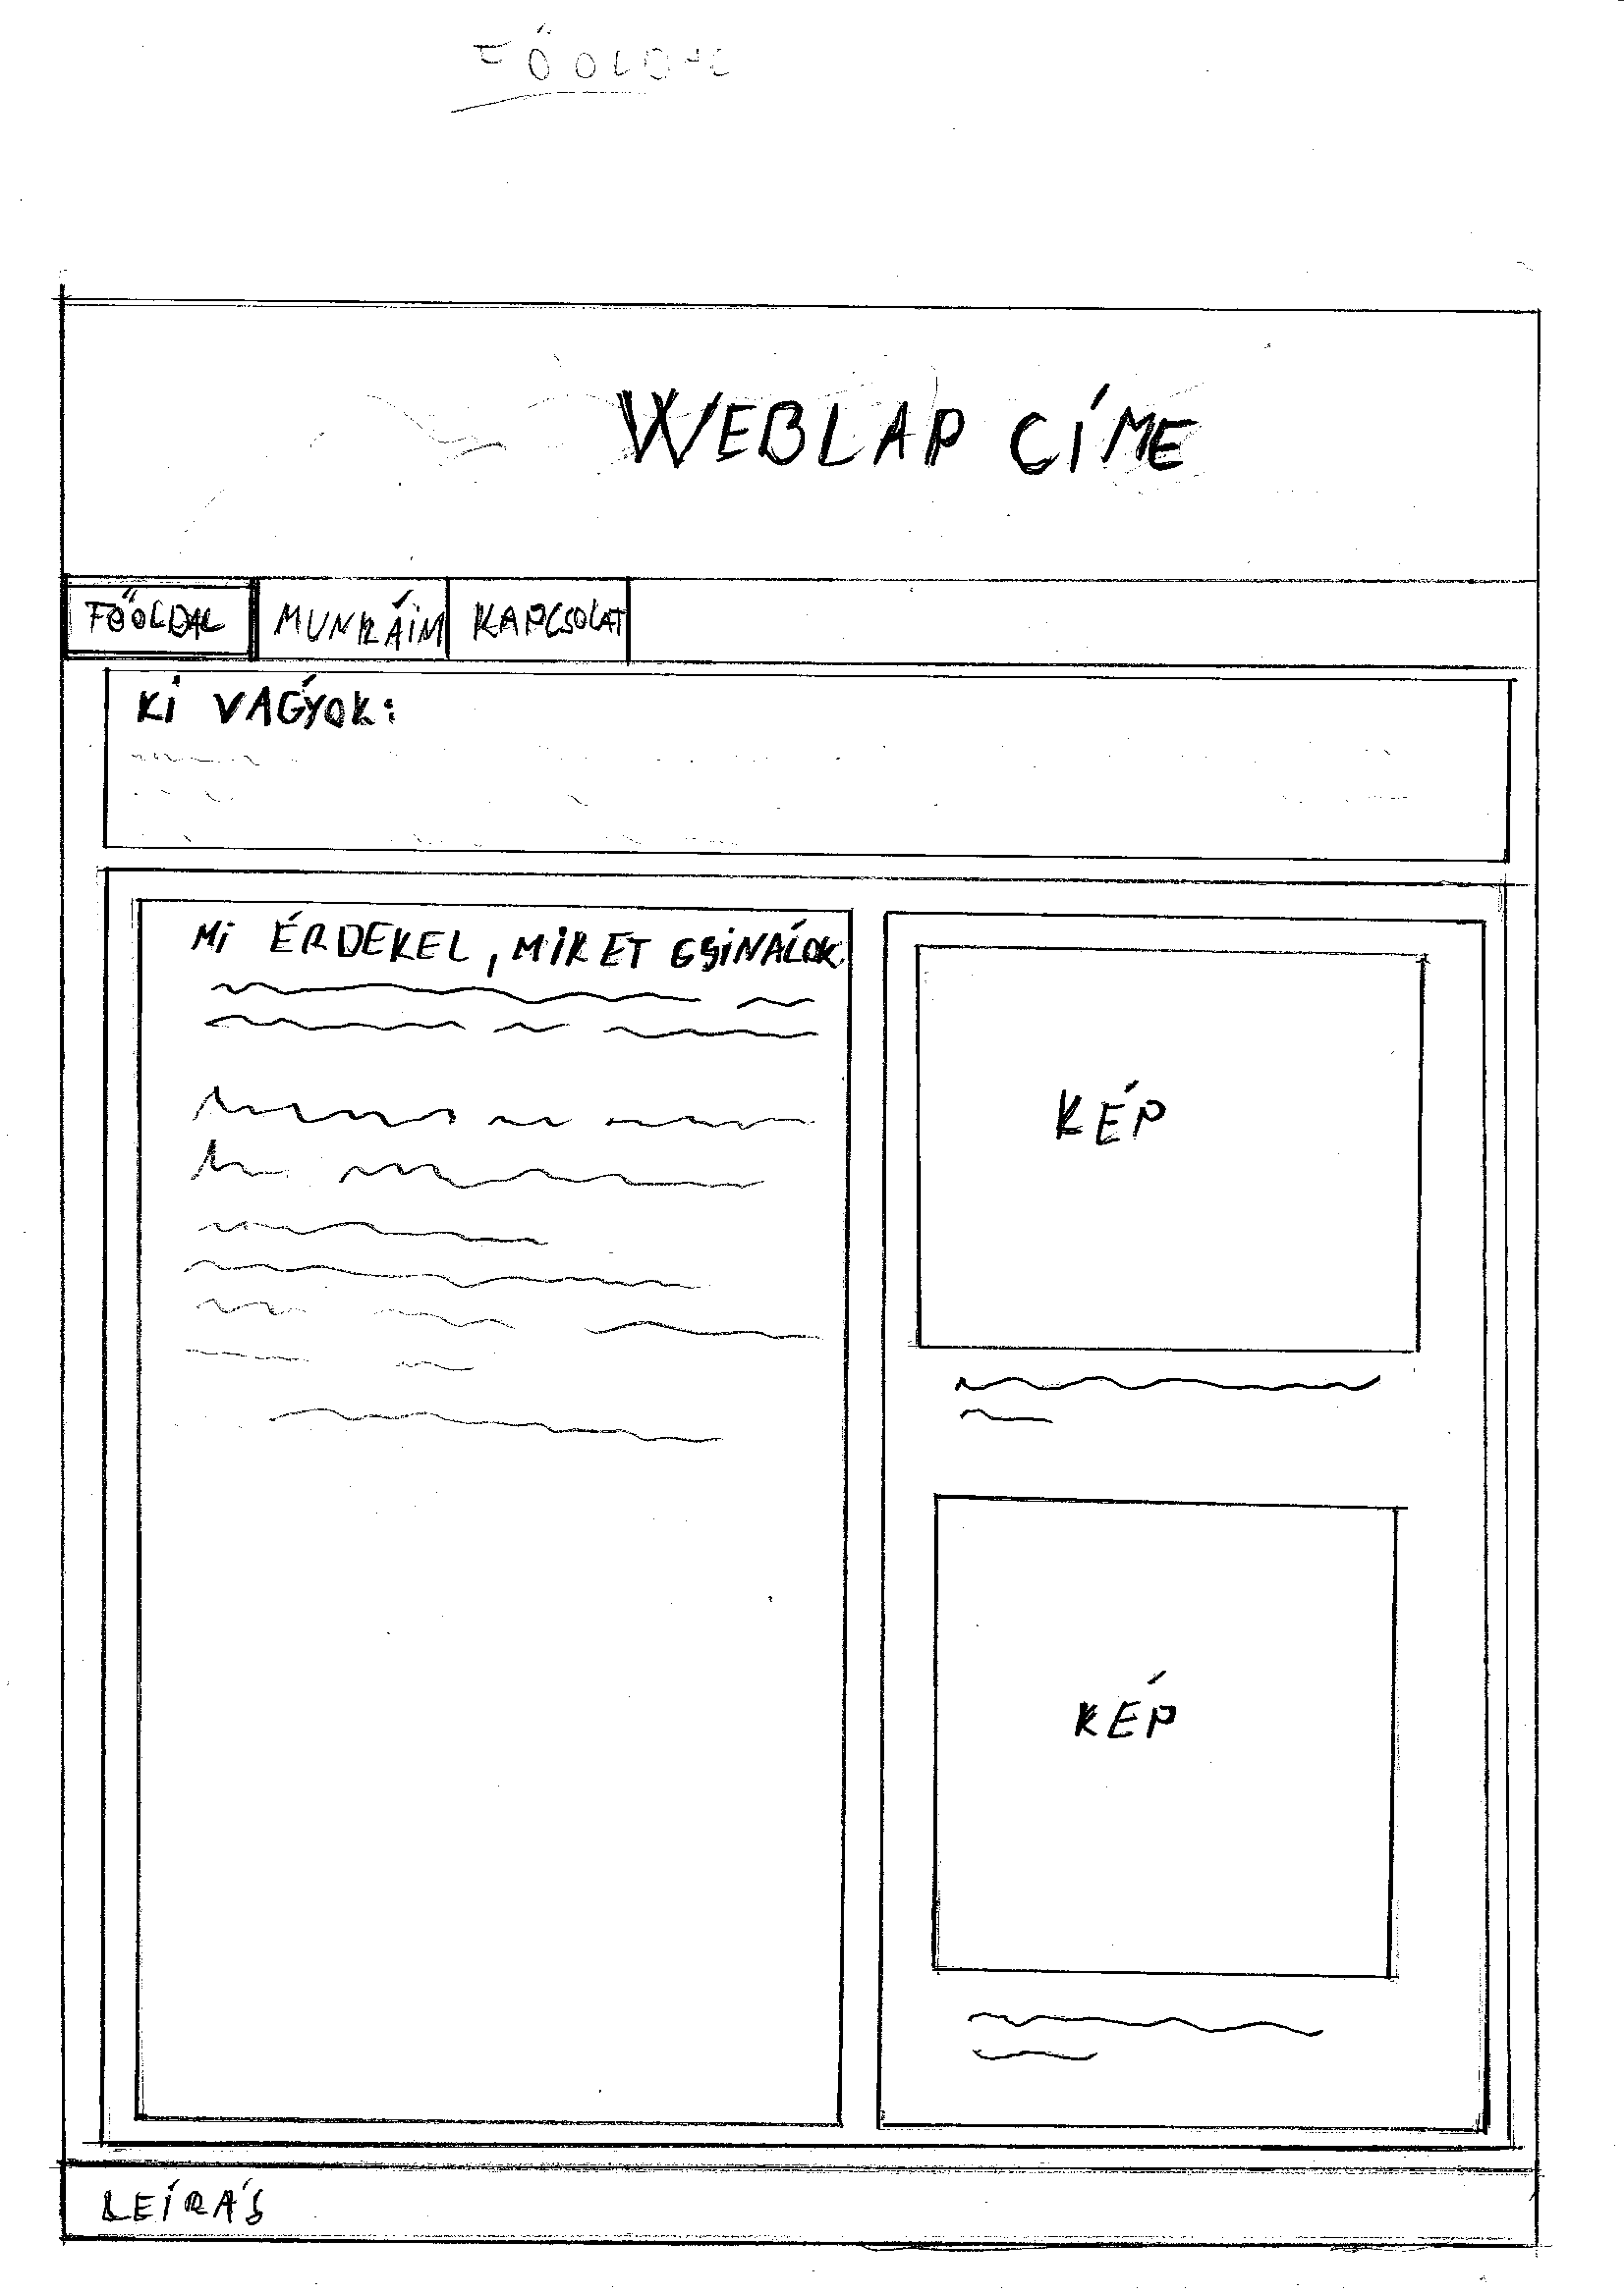 FŐOLDAL
WEBLAP CÍME
FŐOLDAL MUNKÁIM KAPCSOLAT
KI VAGYOK:
MI ÉRDEKEL, MIKET CSINÁLOK
KÉP
KÉP
LEÍRÁS